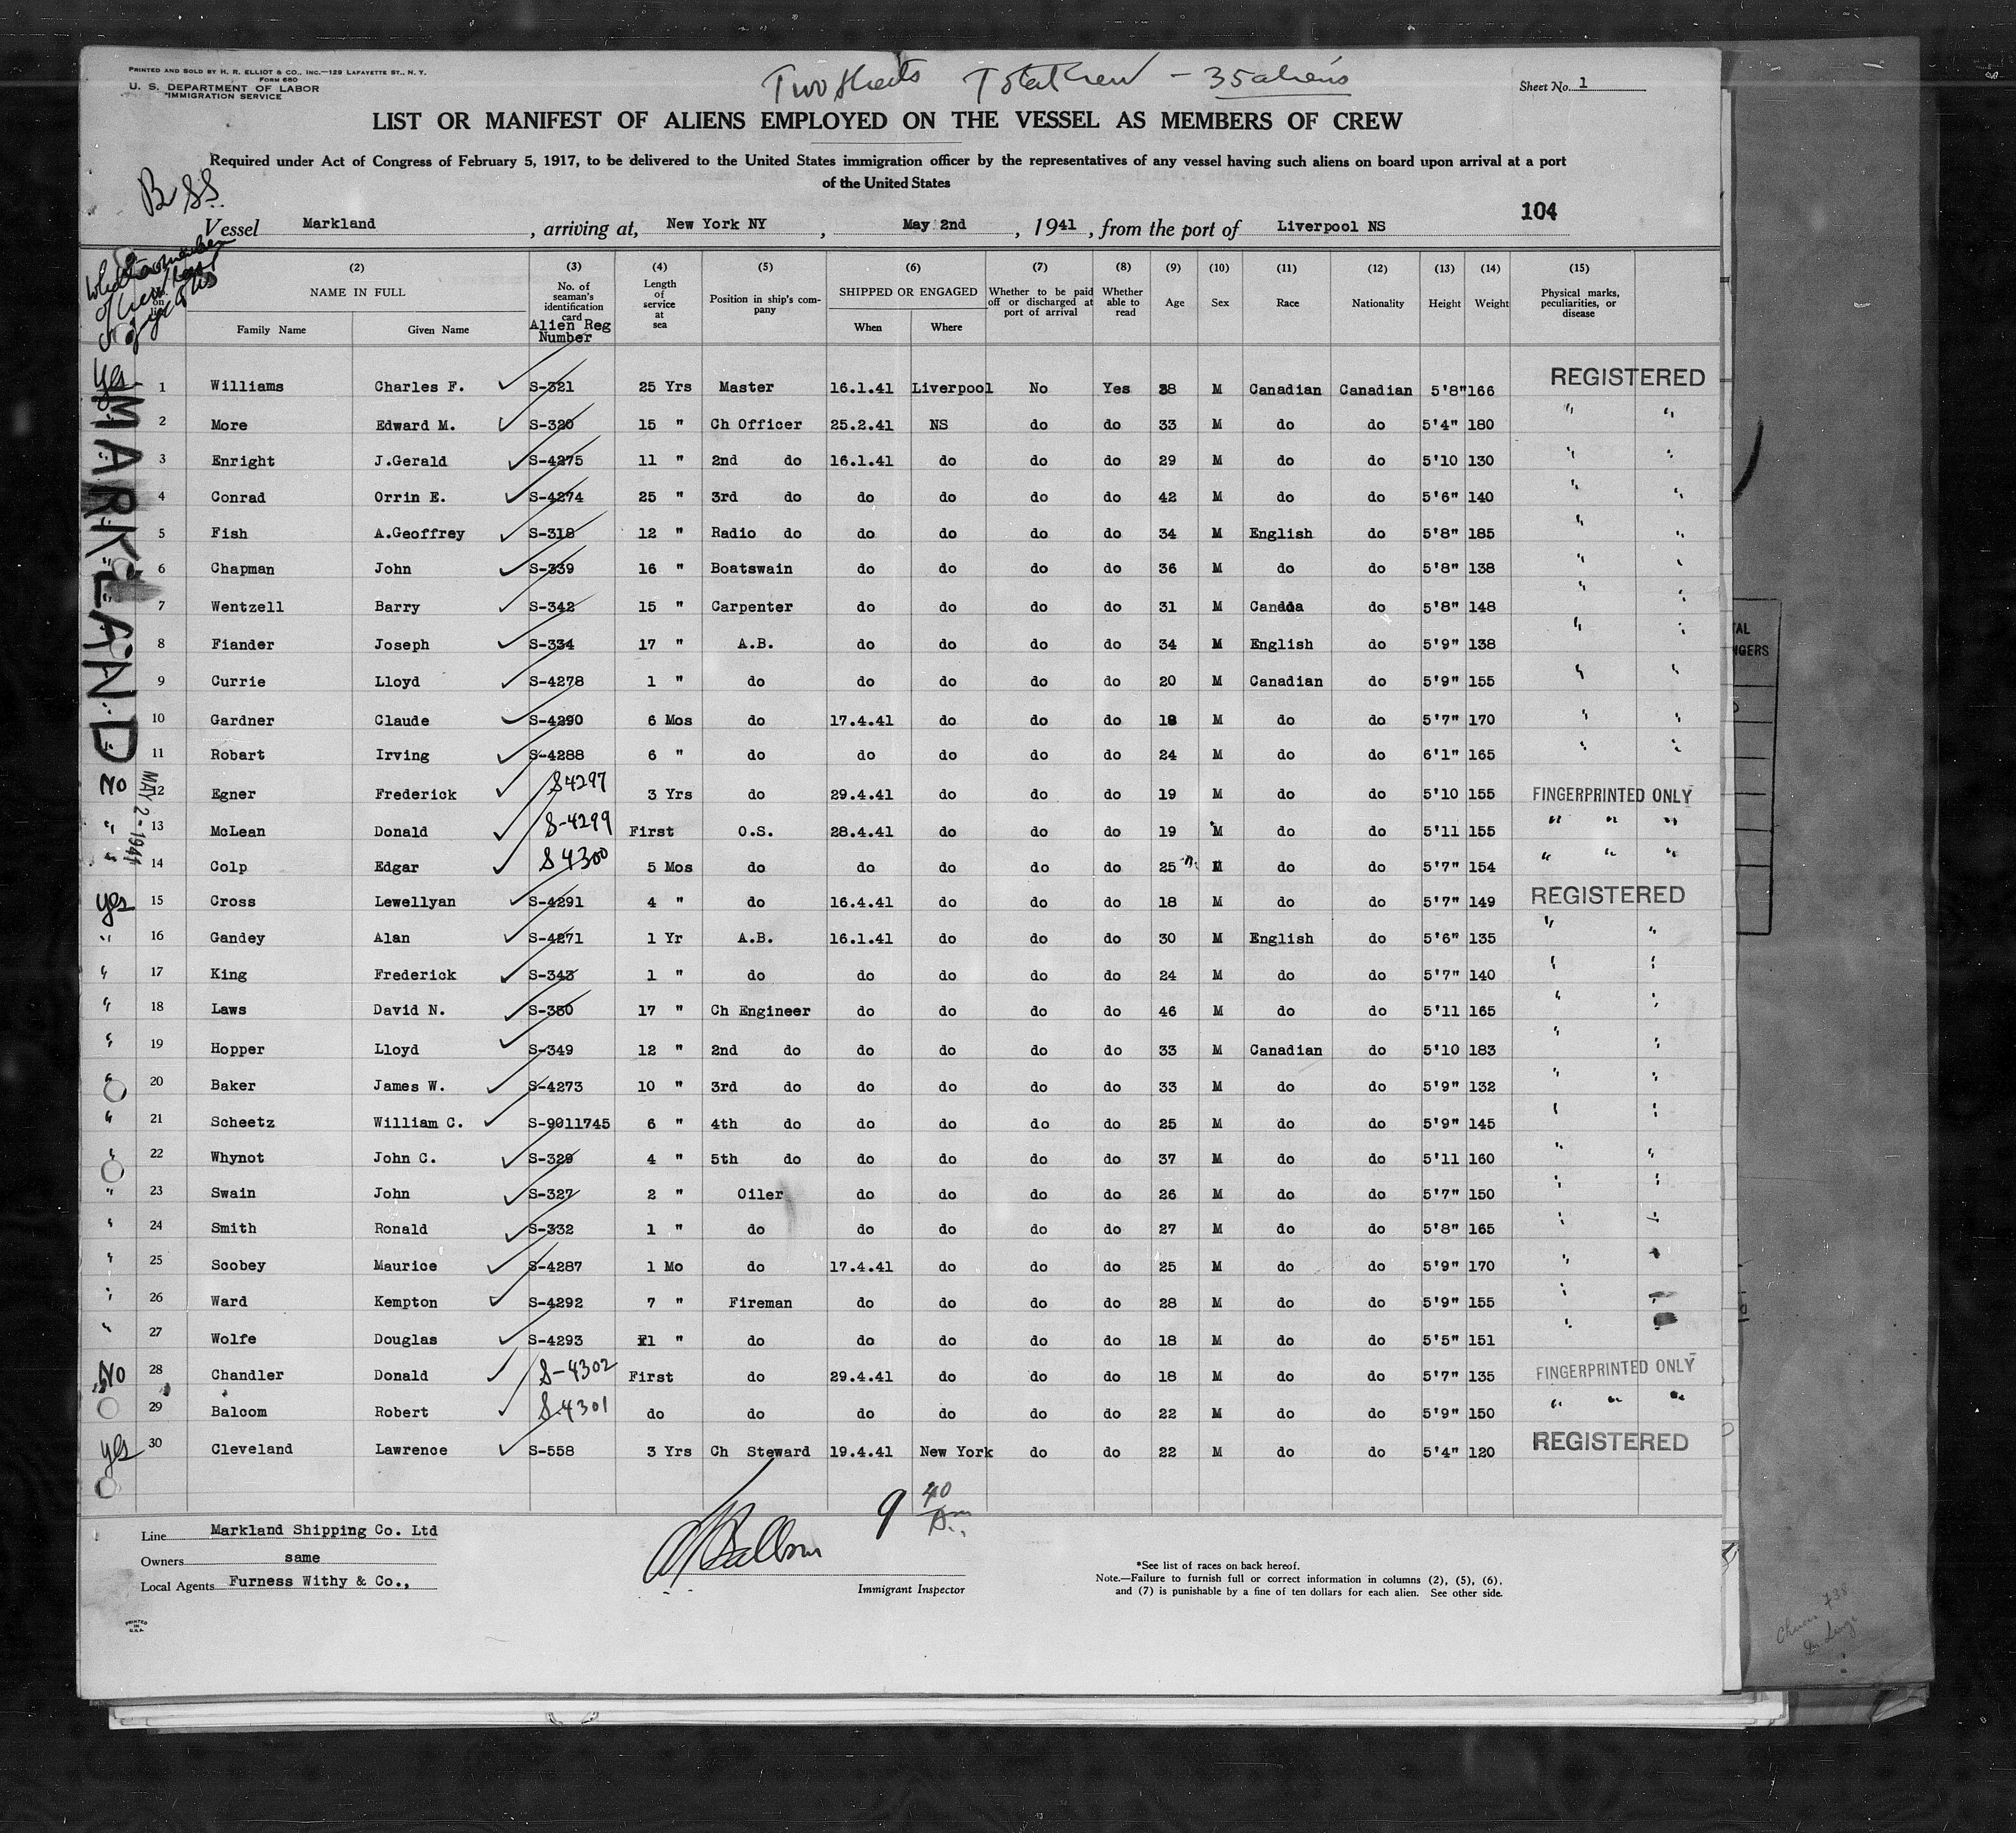 PRINTED AND SOLD BY H. R. ELLIOT & CO., INC.—129 LAFAYETTE ST., N. Y.
FORM 680
U. S. DEPARTMENT OF LABOR
IMMIGRATION SERVICE
Two sheets Total Crew - 35 aliens
Sheet No. 1
LIST OR MANIFEST OF ALIENS EMPLOYED ON THE VESSEL AS MEMBERS OF CREW
Required under Act of Congress of February 5, 1917, to be delivered to the United States immigration officer by the representatives of any vessel having such aliens on board upon arrival at a port
of the United States
104
Vessel Markland , arriving at, New York NY , May 2nd , 1941 , from the port of Liverpool NS
(2) NAME IN FULL Family Name Given Name (3) No. of seaman's identification card Alien Reg Number (4) Length of service at sea (5) Position in ship's company (6) SHIPPED OR ENGAGED When Where (7) Whether to be paid off or discharged at port of arrival (8) Whether able to read (9) Age (10) Sex (11) Race (12) Nationality (13) Height (14) Weight (15) Physical marks, peculiarities, or disease
MARKLAND
MAY 2-1941
Yes 1 Williams Charles F. S-321 25 Yrs Master 16.1.41 Liverpool No Yes 38 M Canadian Canadian 5'8" 166 REGISTERED
2 More Edward M. S-320 15 " Ch Officer 25.2.41 NS do do 33 M do do 5'4" 180 " "
3 Enright J.Gerald S-4275 11 " 2nd do 16.1.41 do do do 29 M do do 5'10 130 " "
4 Conrad Orrin E. S-4274 25 " 3rd do do do do do 42 M do do 5'6" 140 " "
5 Fish A.Geoffrey S-318 12 " Radio do do do do do 34 M English do 5'8" 185 " "
6 Chapman John S-339 16 " Boatswain do do do do 36 M do do 5'8" 138 " "
7 Wentzell Barry S-342 15 " Carpenter do do do do 31 M Canada do 5'8" 148 " "
8 Fiander Joseph S-334 17 " A.B. do do do do 34 M English do 5'9" 138 " "
9 Currie Lloyd S-4278 1 " do do do do do 20 M Canadian do 5'9" 155 " "
10 Gardner Claude S-4290 6 Mos do 17.4.41 do do do 18 M do do 5'7" 170 " "
11 Robart Irving S-4288 6 " do do do do do 24 M do do 6'1" 165 " "
No 12 Egner Frederick S4297 3 Yrs do 29.4.41 do do do 19 M do do 5'10 155 FINGERPRINTED ONLY
" 13 McLean Donald S-4299 First O.S. 28.4.41 do do do 19 M do do 5'11 155 " " "
" 14 Colp Edgar S4300 5 Mos do do do do do 25 M do do 5'7" 154 " " "
yes 15 Cross Lewellyan S-4291 4 " do 16.4.41 do do do 18 M do do 5'7" 149 REGISTERED
" 16 Gandey Alan S-4271 1 Yr A.B. 16.1.41 do do do 30 M English do 5'6" 135 " "
" 17 King Frederick S-343 1 " do do do do do 24 M do do 5'7" 140 " "
" 18 Laws David N. S-350 17 " Ch Engineer do do do do 46 M do do 5'11 165 " "
" 19 Hopper Lloyd S-349 12 " 2nd do do do do do 33 M Canadian do 5'10 183 " "
" 20 Baker James W. S-4273 10 " 3rd do do do do do 33 M do do 5'9" 132 " "
" 21 Scheetz William C. S-9011745 6 " 4th do do do do do 25 M do do 5'9" 145 " "
" 22 Whynot John C. S-329 4 " 5th do do do do do 37 M do do 5'11 160 " "
" 23 Swain John S-327 2 " Oiler do do do do 26 M do do 5'7" 150 " "
" 24 Smith Ronald S-332 1 " do do do do do 27 M do do 5'8" 165 " "
" 25 Scobey Maurice S-4287 1 Mo do 17.4.41 do do do 25 M do do 5'9" 170 "
" 26 Ward Kempton S-4292 7 " Fireman do do do do 28 M do do 5'9" 155 "
" 27 Wolfe Douglas S-4293 11 " do do do do do 18 M do do 5'5" 151 "
No 28 Chandler Donald S-4302 First do 29.4.41 do do do 18 M do do 5'7" 135 FINGERPRINTED ONLY
29 Balcom Robert S-4301 do do do do do do 22 M do do 5'9" 150 " " "
yes 30 Cleveland Lawrence S-558 3 Yrs Ch Steward 19.4.41 New York do do 22 M do do 5'4" 120 REGISTERED
9 40
Line Markland Shipping Co. Ltd
Owners same
Local Agents Furness Withy & Co.,
Immigrant Inspector
*See list of races on back hereof.
Note.—Failure to furnish full or correct information in columns (2), (5), (6),
and (7) is punishable by a fine of ten dollars for each alien. See other side.
PRINTED
IN
U.S.A.